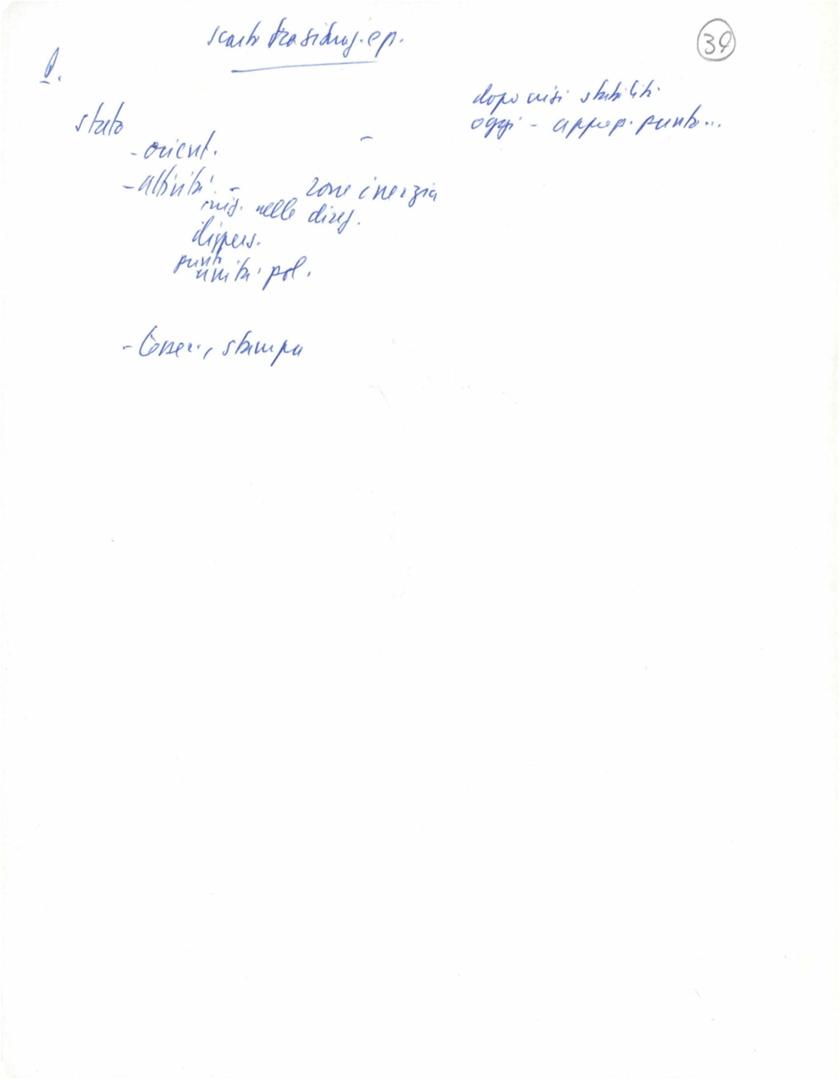 scarto tra situaz. e p.
39
P.
dopo crisi stabiliti
oggi - approp. punto...
stato
- orient.
-
- attività -
zone inerzia
nelle direz.
dispers.
punti
unità pol.
- tesser., stampa